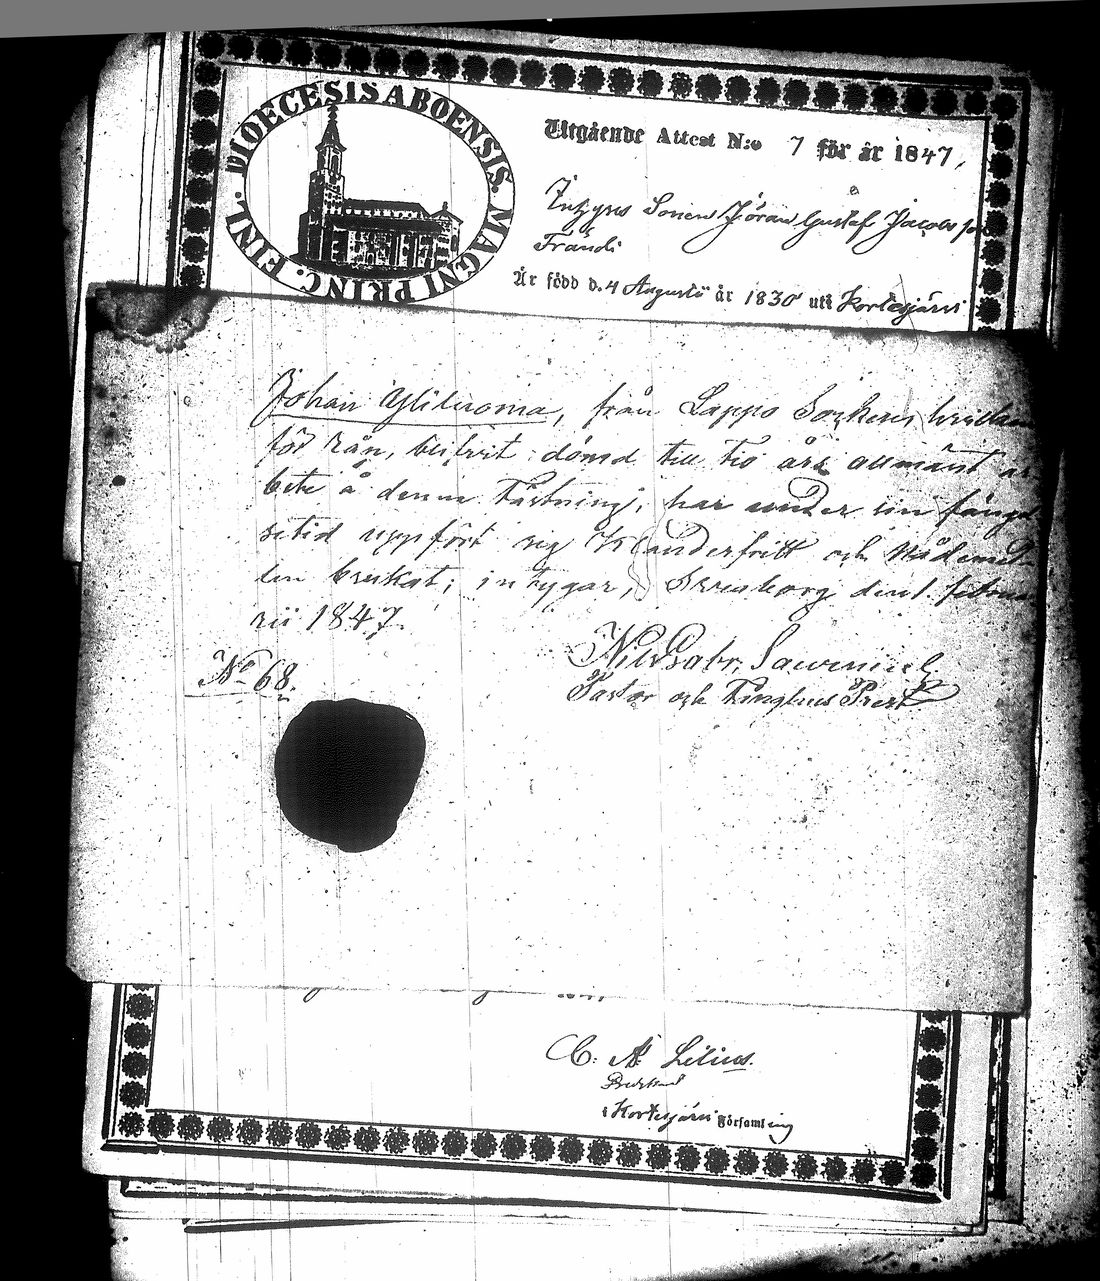 DIOECESIS ABOENSIS. MAGNI PRINC. FINL.
Utgående Attest N:o 7 för år 1847,
Intygas Sonen Jöran Gustaf Jacobs son
Frändi
Är född d. 4 Augusti år 1830 uti Kortesjärvi
Johan Yliluoma, från Lappo Socken, hvilken
för Rån, blifvit dömd till tio års allmänt ar
bete å denna Fästning, har under sin fånge
setid uppfört sig klanderfritt och Nådemed
len brukat; intygar, Sveaborg den 1. Februa
rii 1847.
Nils Gabr.
N:o 68.
Pastor och Fånghus Prest
C. A. Lilius.
i Kortesjärvi Församling